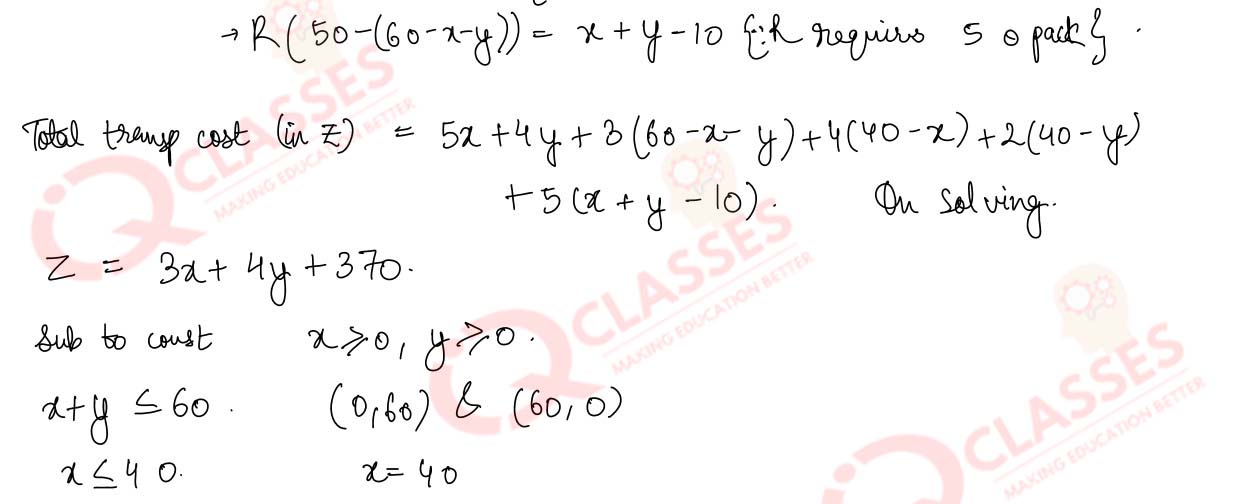 → R(50-(60-x-y)) = x+y-10 {∵R requirs 50 pack} .
Total transp cost (in Z) = 5x+4y+3(60-x-y)+4(40-x)+2(40-y)
+5(x+y-10). On solving.
Z = 3x+4y+370.
Sub to const x≥0, y≥0.
x+y ≤ 60. (0,60) & (60,0)
x ≤ 40. x=40
CLASSES
MAKING EDUCATION BETTER
CLASSES
MAKING EDUCATION BETTER
CLASSES
MAKING EDUCATION BETTER